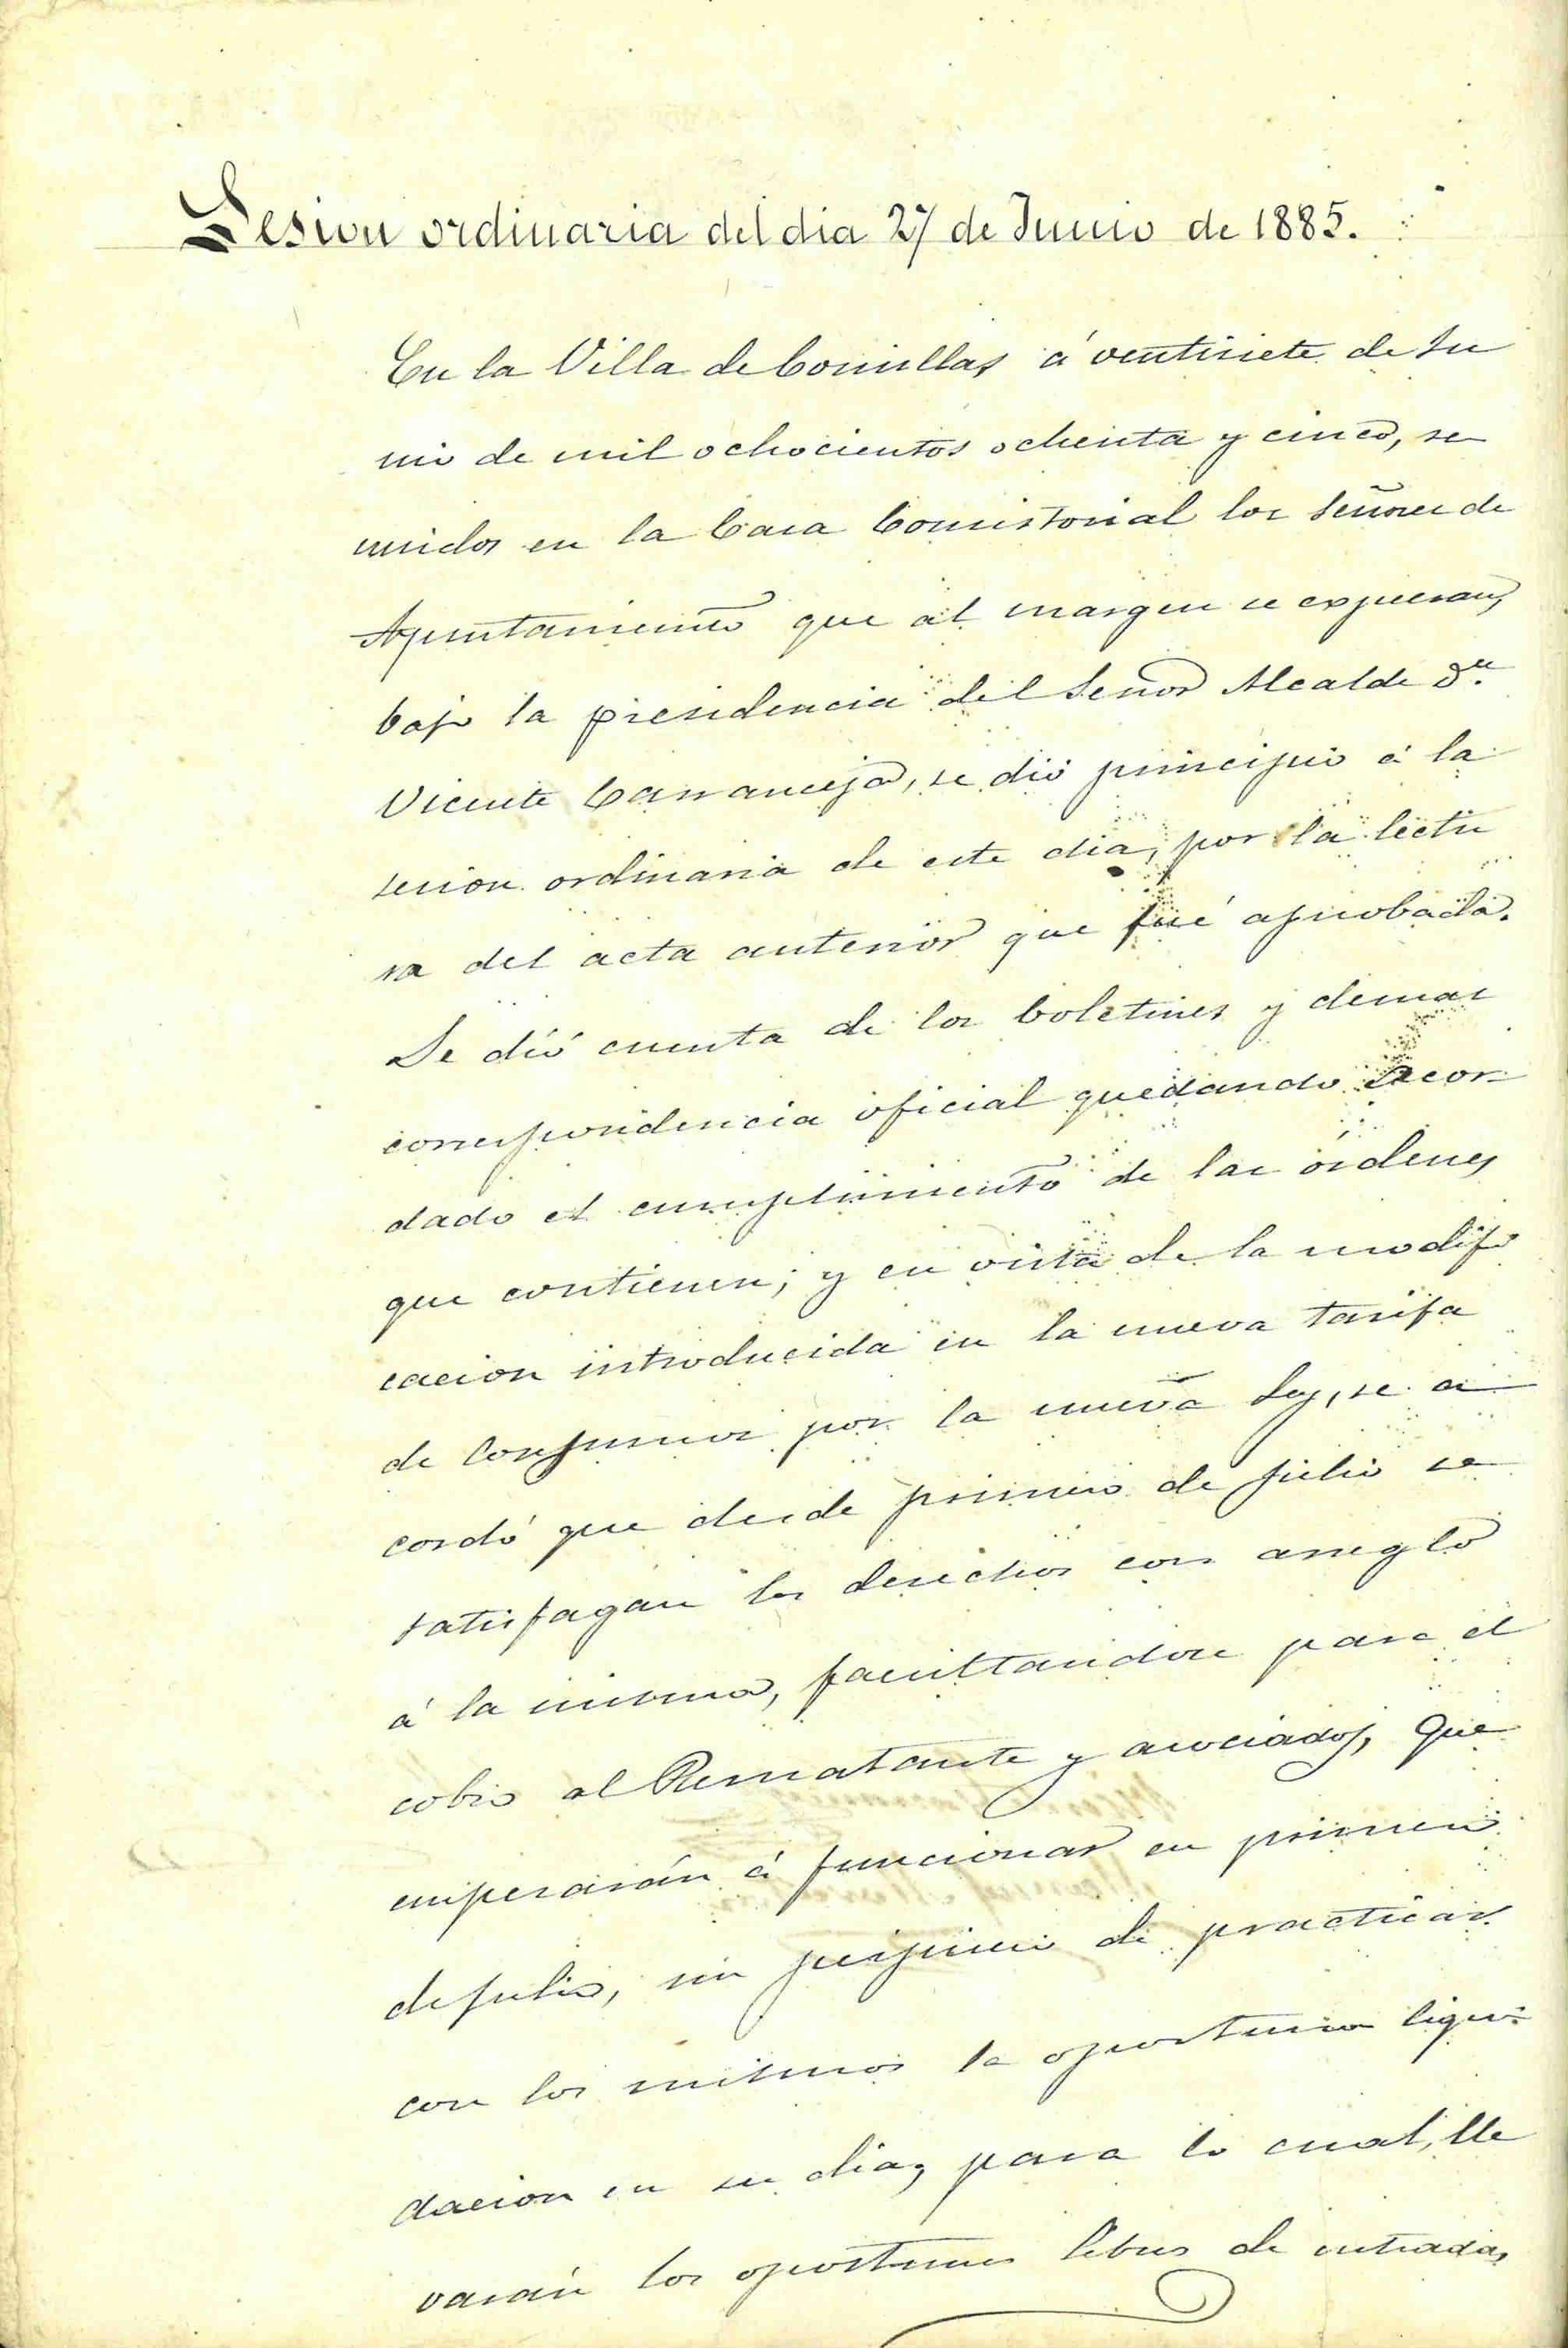 Sesion ordinaria del dia 27 de Junio de 1885.
En la Villa de Comillas á ventisiete de Ju
nio de mil ochocientos ochenta y cinco, re
unidos en la Casa Consistorial los Señores de
Ayuntamiento que al margen se expresan,
bajo la presidencia del Señor Alcalde Dn.
Vicente Carranceja, se dió principio á la
sesion ordinaria de este dia, por la lectu
ra del acta anterior que fué aprobada.
Se dió cuenta de los boletines y demas
correspondencia oficial quedando acor
dado el cumplimiento de las órdenes
que contienen; y en vista de la modifi
cacion introducida en la nueva tarifa
de Consumos por la nueva Ley, se a
cordó que desde primero de julio se
satisfagan los derechos con arreglo
á la misma, facultandose para el
cobro al Rematante y asociados, que
empesarán á funcionar en primero
de julio, sin perjuicio de practicar
con los mismos la oportuna liqui
dacion en su dia, para lo cual, lle
varán los oportunos libros de entradas